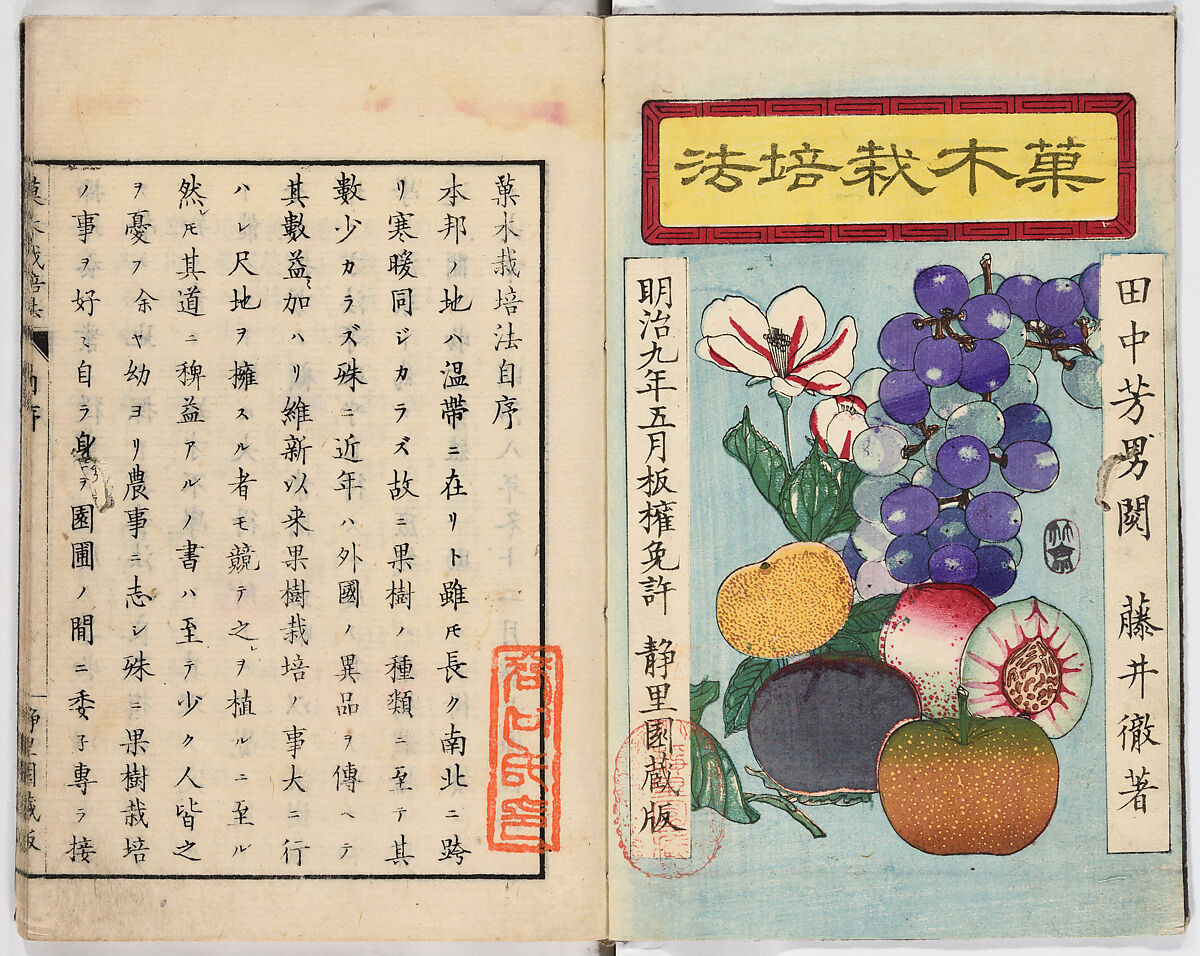 菓木栽培法
田中芳男閲　藤井徹著
明治九年五月板権免許　静里園蔵版
菓木栽培法自序
本邦ノ地ハ温帶ニ在リト雖𪜈長ク南北ニ跨
リ寒暖同ジカラズ故ニ果樹ノ種類ニ至テ其
數少カラズ殊ニ近年ハ外國ノ異品ヲ傳ヘテ
其數益〻加ハリ維新以来果樹栽培ノ事大ニ行
ハレ尺地ヲ擁スル者モ競テ之ヲ植ルニ至ル
然レ𪜈其道ニ稗益アルノ書ハ至テ少ク人皆之
ヲ憂フ余ヤ幼ヨリ農事ニ志シ殊ニ果樹栽培
ノ事ヲ好ミ自ラ身ヲ園圃ノ間ニ委子專ラ接
静里園蔵版